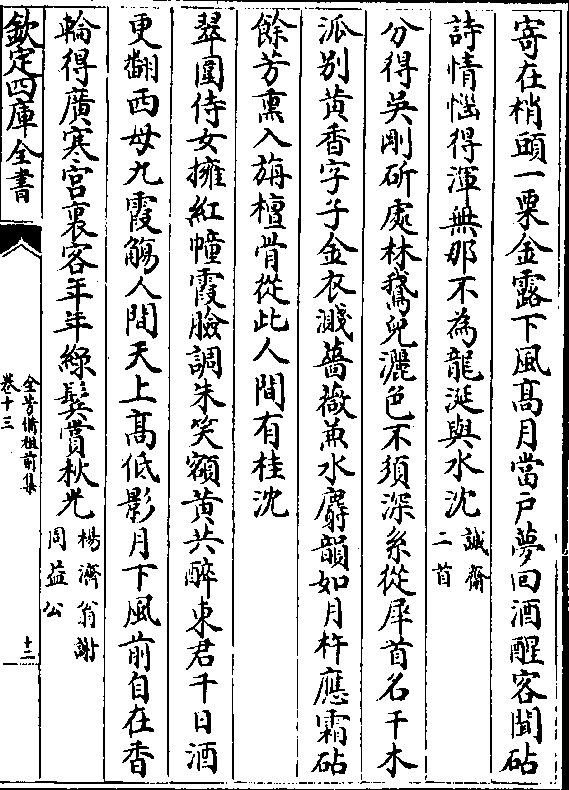 寄在梢頭一粟金露下風高月當户夢回酒醒客聞砧
詩情惱得渾無那不為龍涎與水沈誠齋二首
分得吳剛斫處林鵞兒灑色不須深系從犀首名干木
派别黄香字子金衣濺薔薇兼水麝韻如月杵應霜砧
餘芳熏入旃檀骨從此人間有桂沈
翠圍侍女擁紅幢霞臉調朱笑額黄共醉東君千日酒
更翻西母九霞觴人間天上高低影月下風前自在香
輪得廣寒宫裏客年年綠鬂賞秋光楊濟翁謝周益公
欽定四庫全書
全芳備祖前集
卷十三
十二